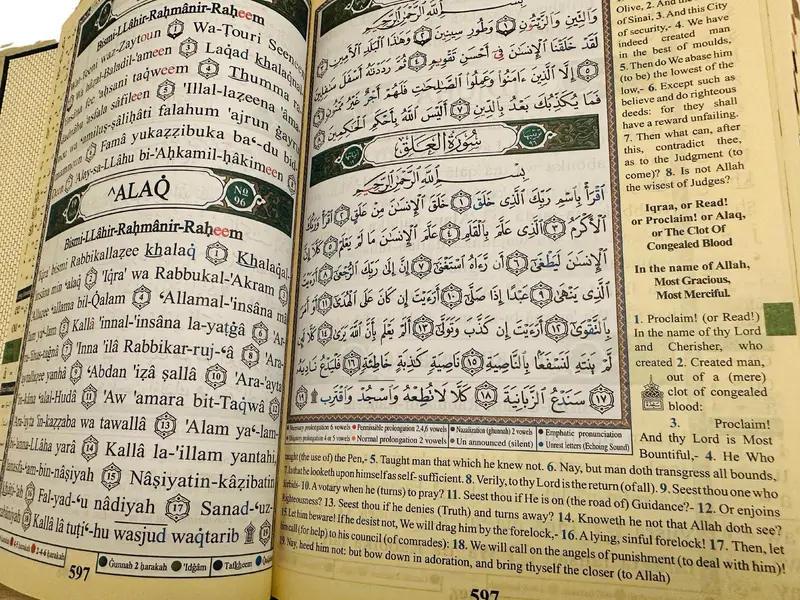 Bismi-LLâhir-Raḥmânir-Raḥeem
waz-Zaytoun ① Wa-Touri Seeneen
Baladil-'ameen ③ Laqad khalaqnal-
fee 'aḥsani taqweem ④ Thumma
'asfala sâfileen ⑤ 'Illal-lazeena
wa 'amiluṣ-ṣâliḥâti falahum 'ajrun ġayru
⑥ Famâ yukazzibuka ba‘du bid-
'Alay-sa-LLâhu bi-'Aḥkamil-ḥâkimeen
^ALAQ̇
No 96
Bismi-LLâhir-Raḥmânir-Raḥeem
bismi Rabbikallazee khalaq ① Khalaqal-
min ‘alaq ② 'Iqra' wa Rabbukal-'Akram ③
‘allama bil-Qalam ④ ‘Allamal-'insâna mâ
lam ya‘-lam ⑤ Kallâ 'innal-'insâna la-yaṭġâ ⑥ 'Ar-
⑦ 'Inna 'ilâ Rabbikar-ruj-‘â ⑧ 'Ara-'ayta
yanhâ ⑨ ‘Abdan 'iẓâ ṣallâ ⑩ 'Ara-'ayta
kâna ‘alal-Hudâ ⑪ 'Aw 'amara bit-Taqwâ ⑫
'in-kazzaba wa tawallâ ⑬ 'Alam ya‘-lam-
yarâ ⑭ Kallâ la-'illam yantahi
⑮ Nâṣiyatin-kâzibatin
⑯ Fal-yad-‘u nâdiyah ⑰ Sanad-‘uz-
⑱ Kallâ lâ tuṭi‘-hu wasjud waqtarib
Ġunnah 2 ḥarakah 'Idġâm Tafkheem
597
بِسْمِ اللَّهِ الرَّحْمَٰنِ الرَّحِيمِ
وَالتِّينِ وَالزَّيْتُونِ ١ وَطُورِ سِينِينَ ٢ وَهَٰذَا الْبَلَدِ الْأَمِينِ ٣
لَقَدْ خَلَقْنَا الْإِنسَٰنَ فِي أَحْسَنِ تَقْوِيمٍ ٤ ثُمَّ رَدَدْنَٰهُ أَسْفَلَ سَٰفِلِينَ
٥ إِلَّا الَّذِينَ ءَامَنُوا وَعَمِلُوا الصَّٰلِحَٰتِ فَلَهُمْ أَجْرٌ غَيْرُ مَمْنُونٍ ٦
فَمَا يُكَذِّبُكَ بَعْدُ بِالدِّينِ ٧ أَلَيْسَ اللَّهُ بِأَحْكَمِ الْحَٰكِمِينَ ٨
سُورَةُ الْعَلَقِ
بِسْمِ اللَّهِ الرَّحْمَٰنِ الرَّحِيمِ
اقْرَأْ بِاسْمِ رَبِّكَ الَّذِي خَلَقَ ١ خَلَقَ الْإِنسَٰنَ مِنْ عَلَقٍ ٢ اقْرَأْ وَرَبُّكَ
الْأَكْرَمُ ٣ الَّذِي عَلَّمَ بِالْقَلَمِ ٤ عَلَّمَ الْإِنسَٰنَ مَا لَمْ يَعْلَمْ ٥ كَلَّا إِنَّ
الْإِنسَٰنَ لَيَطْغَىٰ ٦ أَن رَّءَاهُ اسْتَغْنَىٰ ٧ إِنَّ إِلَىٰ رَبِّكَ الرُّجْعَىٰ ٨ أَرَءَيْتَ
الَّذِي يَنْهَىٰ ٩ عَبْدًا إِذَا صَلَّىٰ ١٠ أَرَءَيْتَ إِن كَانَ عَلَى الْهُدَىٰ ١١ أَوْ أَمَرَ
بِالتَّقْوَىٰ ١٢ أَرَءَيْتَ إِن كَذَّبَ وَتَوَلَّىٰ ١٣ أَلَمْ يَعْلَم بِأَنَّ اللَّهَ يَرَىٰ ١٤ كَلَّا لَئِن
لَّمْ يَنتَهِ لَنَسْفَعًا بِالنَّاصِيَةِ ١٥ نَاصِيَةٍ كَٰذِبَةٍ خَاطِئَةٍ ١٦ فَلْيَدْعُ نَادِيَهُ
١٧ سَنَدْعُ الزَّبَانِيَةَ ١٨ كَلَّا لَا تُطِعْهُ وَاسْجُدْ وَاقْتَرِب ١٩
Necessary prolongation 6 vowels Permissible prolongation 2,4,6 vowels Nazalization (ghunnah) 2 vowels Emphatic pronunciation
Obligatory prolongation 4 or 5 vowels Normal prolongation 2 vowels Un announced (silent) Unrest letters (Echoing Sound)
Olive, 2. And the
of Sinai, 3. And this City
of security,- 4. We have
indeed created man
in the best of moulds,
5. Then do We abase him
(to be) the lowest of the
low,- 6. Except such as
believe and do righteous
deeds: for they shall
have a reward unfailing.
7. Then what can, after
this, contradict thee,
as to the Judgment (to
come)? 8. Is not Allah
the wisest of Judges?
Iqraa, or Read!
or Proclaim! or Alaq,
or The Clot Of
Congealed Blood
In the name of Allah,
Most Gracious,
Most Merciful.
1. Proclaim! (or Read!)
In the name of thy Lord
and Cherisher, who
created 2. Created man,
out of a (mere)
clot of congealed
blood:
3. Proclaim!
And thy Lord is Most
Bountiful,- 4. He Who
taught (the use of) the Pen,- 5. Taught man that which he knew not. 6. Nay, but man doth transgress all bounds,
7. In that he looketh upon himself as self- sufficient. 8. Verily, to thy Lord is the return (of all). 9. Seest thou one who
forbids- 10. A votary when he (turns) to pray? 11. Seest thou if He is on (the road of) Guidance?- 12. Or enjoins
Righteousness? 13. Seest thou if he denies (Truth) and turns away? 14. Knoweth he not that Allah doth see?
15. Let him beware! If he desist not, We will drag him by the forelock,- 16. A lying, sinful forelock! 17. Then, let
him call (for help) to his council (of comrades): 18. We will call on the angels of punishment (to deal with him)!
19. Nay, heed him not: but bow down in adoration, and bring thyself the closer (to Allah)
597